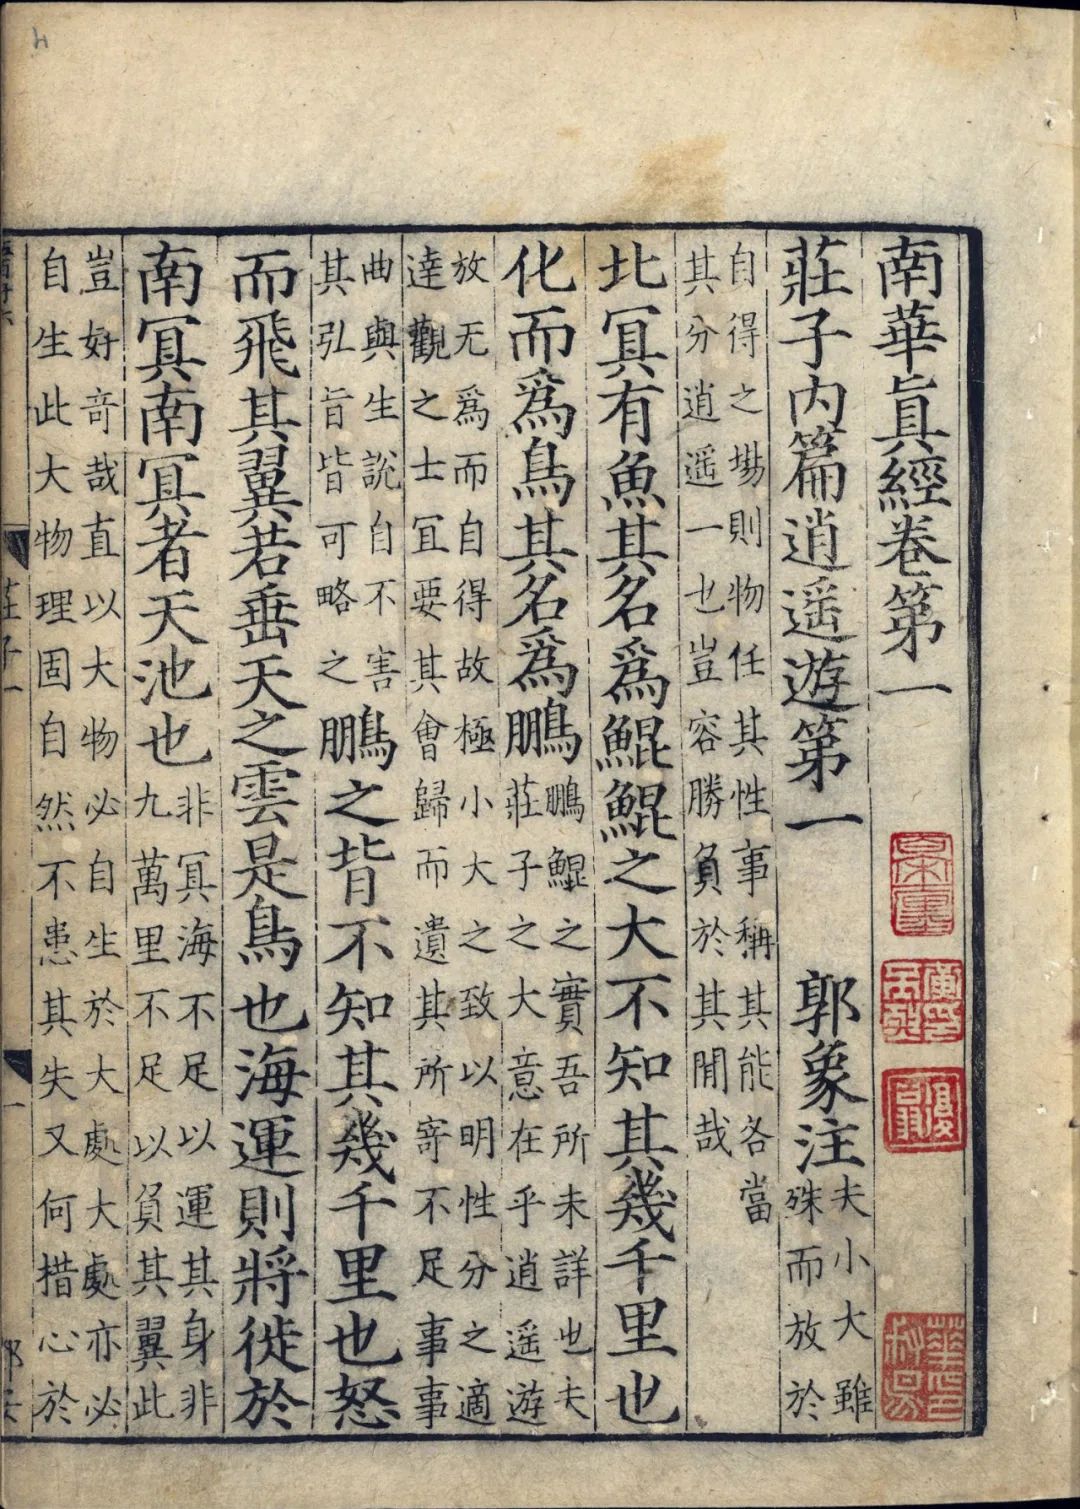 南華眞經卷第一
莊子內篇逍遥遊第一 郭象注 夫小大雖
殊而放於
自得之場則物任其性事稱其能各當
其分逍遥一也豈容勝負於其閒哉
北冥有魚其名爲鯤鯤之大不知其幾千里也
化而爲鳥其名爲鵬 鵬鯤之實吾所未詳也夫
莊子之大意在乎逍遥游
放无爲而自得故極小大之致以明性分之適
達觀之士冝要其會歸而遺其所寄不足事事
曲與生說自不害
其弘旨皆可略之 鵬之背不知其幾千里也怒
而飛其翼若垂天之雲是鳥也海運則將徙於
南冥南冥者天池也 非冥海不足以運其身非
九萬里不足以負其翼此
豈好奇哉直以大物必自生於大處大處亦必
自生此大物理固自然不患其失又何措心於
莊子一
一